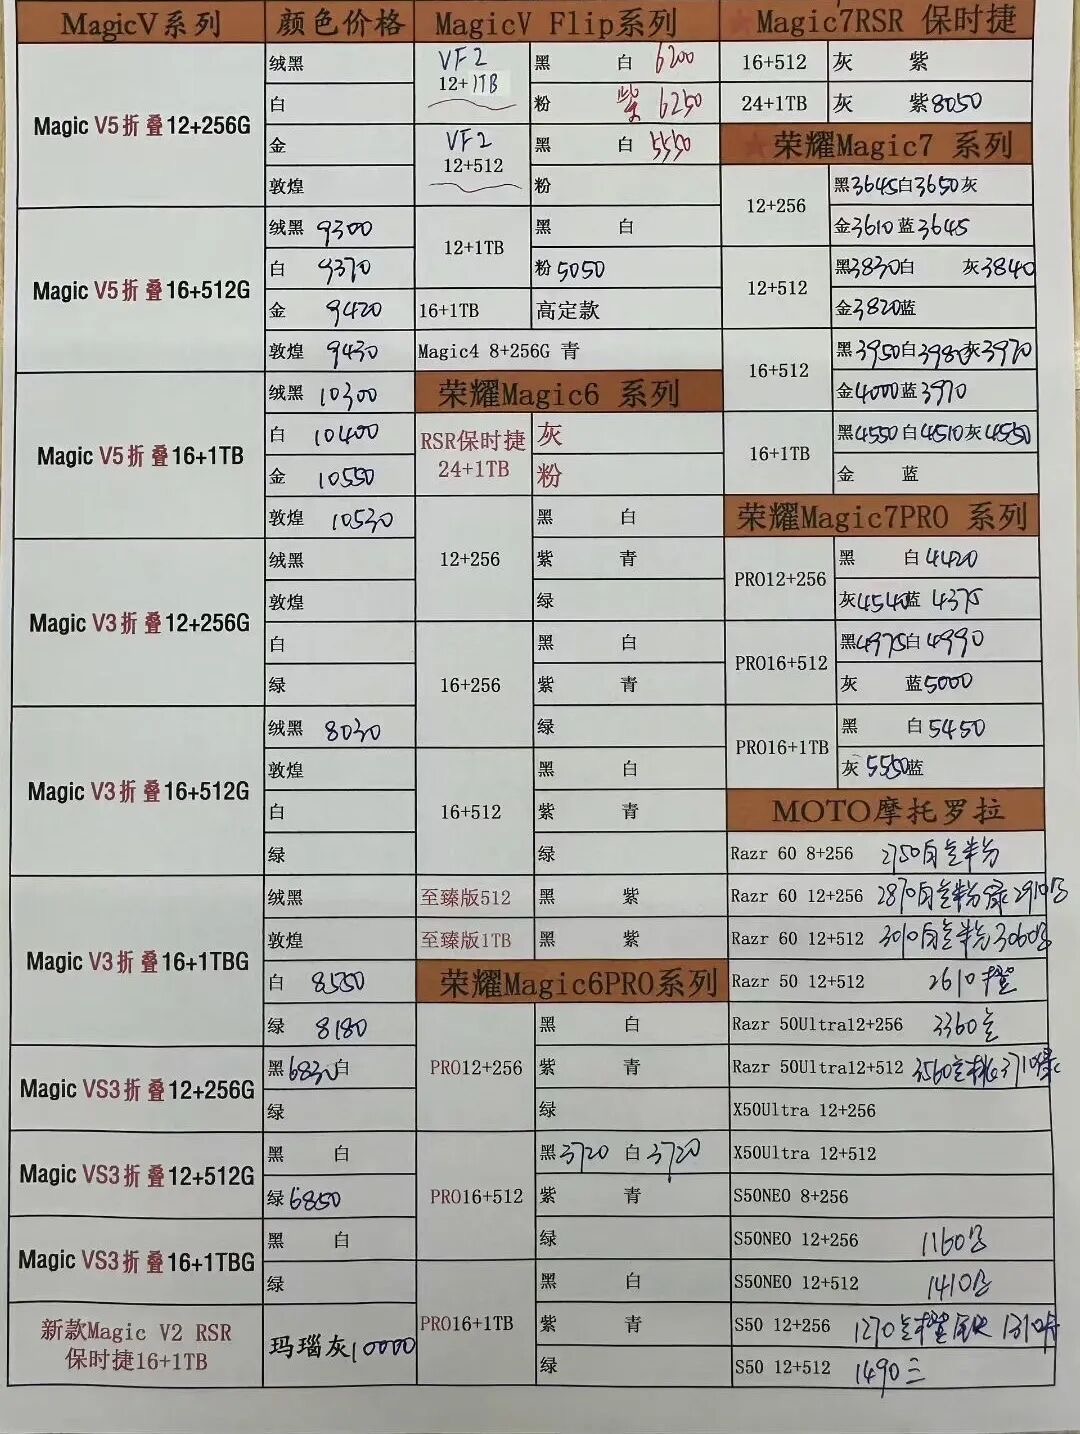 MagicV系列
颜色价格
Magic V5折叠12+256G
绒黑
白
金
敦煌
Magic V5折叠16+512G
绒黑 9300
白 9370
金 9420
敦煌 9430
Magic V5折叠16+1TB
绒黑 10300
白 10400
金 10550
敦煌 10530
Magic V3折叠12+256G
绒黑
敦煌
白
绿
Magic V3折叠16+512G
绒黑 8030
敦煌
白
绿
Magic V3折叠16+1TBG
绒黑
敦煌
白 8550
绿 8180
Magic VS3折叠12+256G
黑6830白
绿
Magic VS3折叠12+512G
黑 白
绿6850
Magic VS3折叠16+1TBG
黑 白
绿
新款Magic V2 RSR
保时捷16+1TB
玛瑙灰10000
MagicV Flip系列
VF2
12+1TB
黑 白 6200
粉 紫 6250
VF2
12+512
黑 白 5550
粉
12+1TB
黑 白
粉5050
16+1TB
高定款
Magic4 8+256G 青
荣耀Magic6 系列
RSR保时捷
24+1TB
灰
粉
12+256
黑 白
紫 青
绿
16+256
黑 白
紫 青
绿
16+512
黑 白
紫 青
绿
至臻版512
黑 紫
至臻版1TB
黑 紫
荣耀Magic6PRO系列
PRO12+256
黑 白
紫 青
绿
PRO16+512
黑3720 白3720
紫 青
绿
PRO16+1TB
黑 白
紫 青
绿
★Magic7RSR 保时捷
16+512
灰 紫
24+1TB
灰 紫8050
★荣耀Magic7 系列
12+256
黑3645白3650灰
金3610蓝3645
12+512
黑3830白 灰3840
金3820蓝
16+512
黑3950白3980灰3970
金4000蓝3970
16+1TB
黑4550白4510灰4550
金 蓝
荣耀Magic7PRO 系列
PRO12+256
黑 白4420
灰4540蓝 4375
PRO16+512
黑4975白4990
灰 蓝5000
PRO16+1TB
黑 白5450
灰5550蓝
MOTO摩托罗拉
Razr 60 8+256 2750
Razr 60 12+256 2870
Razr 60 12+512 3010
Razr 50 12+512 2610橙
Razr 50Ultra12+256 3360
Razr 50Ultra12+512 3560
X50Ultra 12+256
X50Ultra 12+512
S50NEO 8+256
S50NEO 12+256 1160
S50NEO 12+512 1410
S50 12+256 1270
S50 12+512 1490三